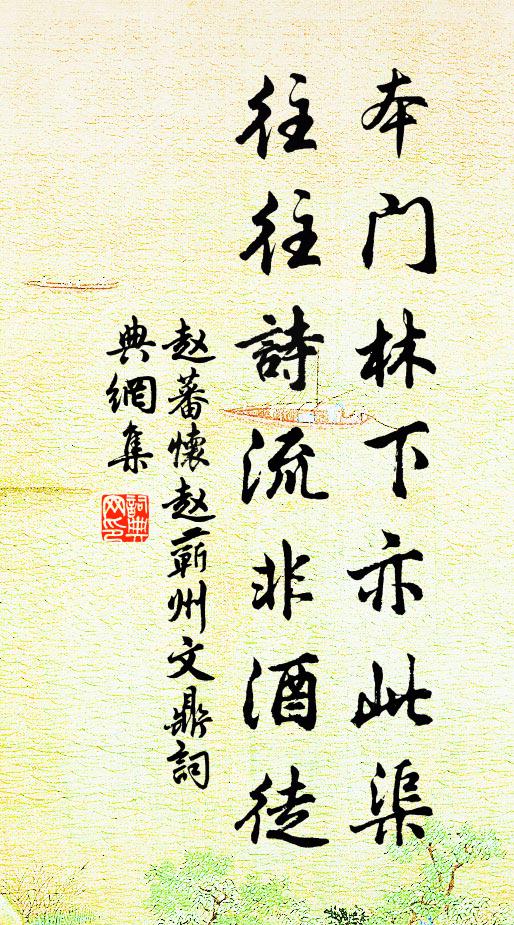 本门林下亦此渠
往往詩流非酒徒
赵蕃懷赵蘄州文鼎詞
典網集
詞典
网印